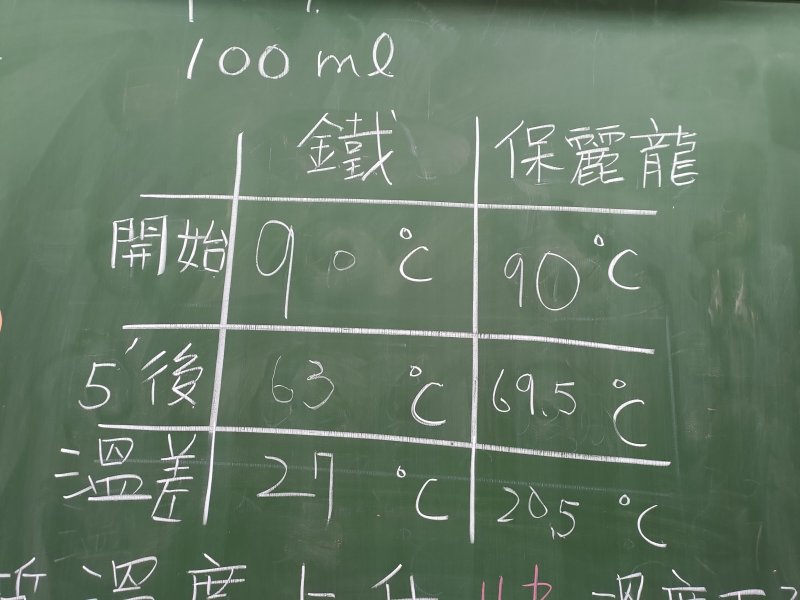 100 ml
鐵 保麗龍
開始 90 ℃ 90 ℃
5'後 63 ℃ 69.5 ℃
溫差 27 ℃ 20.5 ℃
溫度